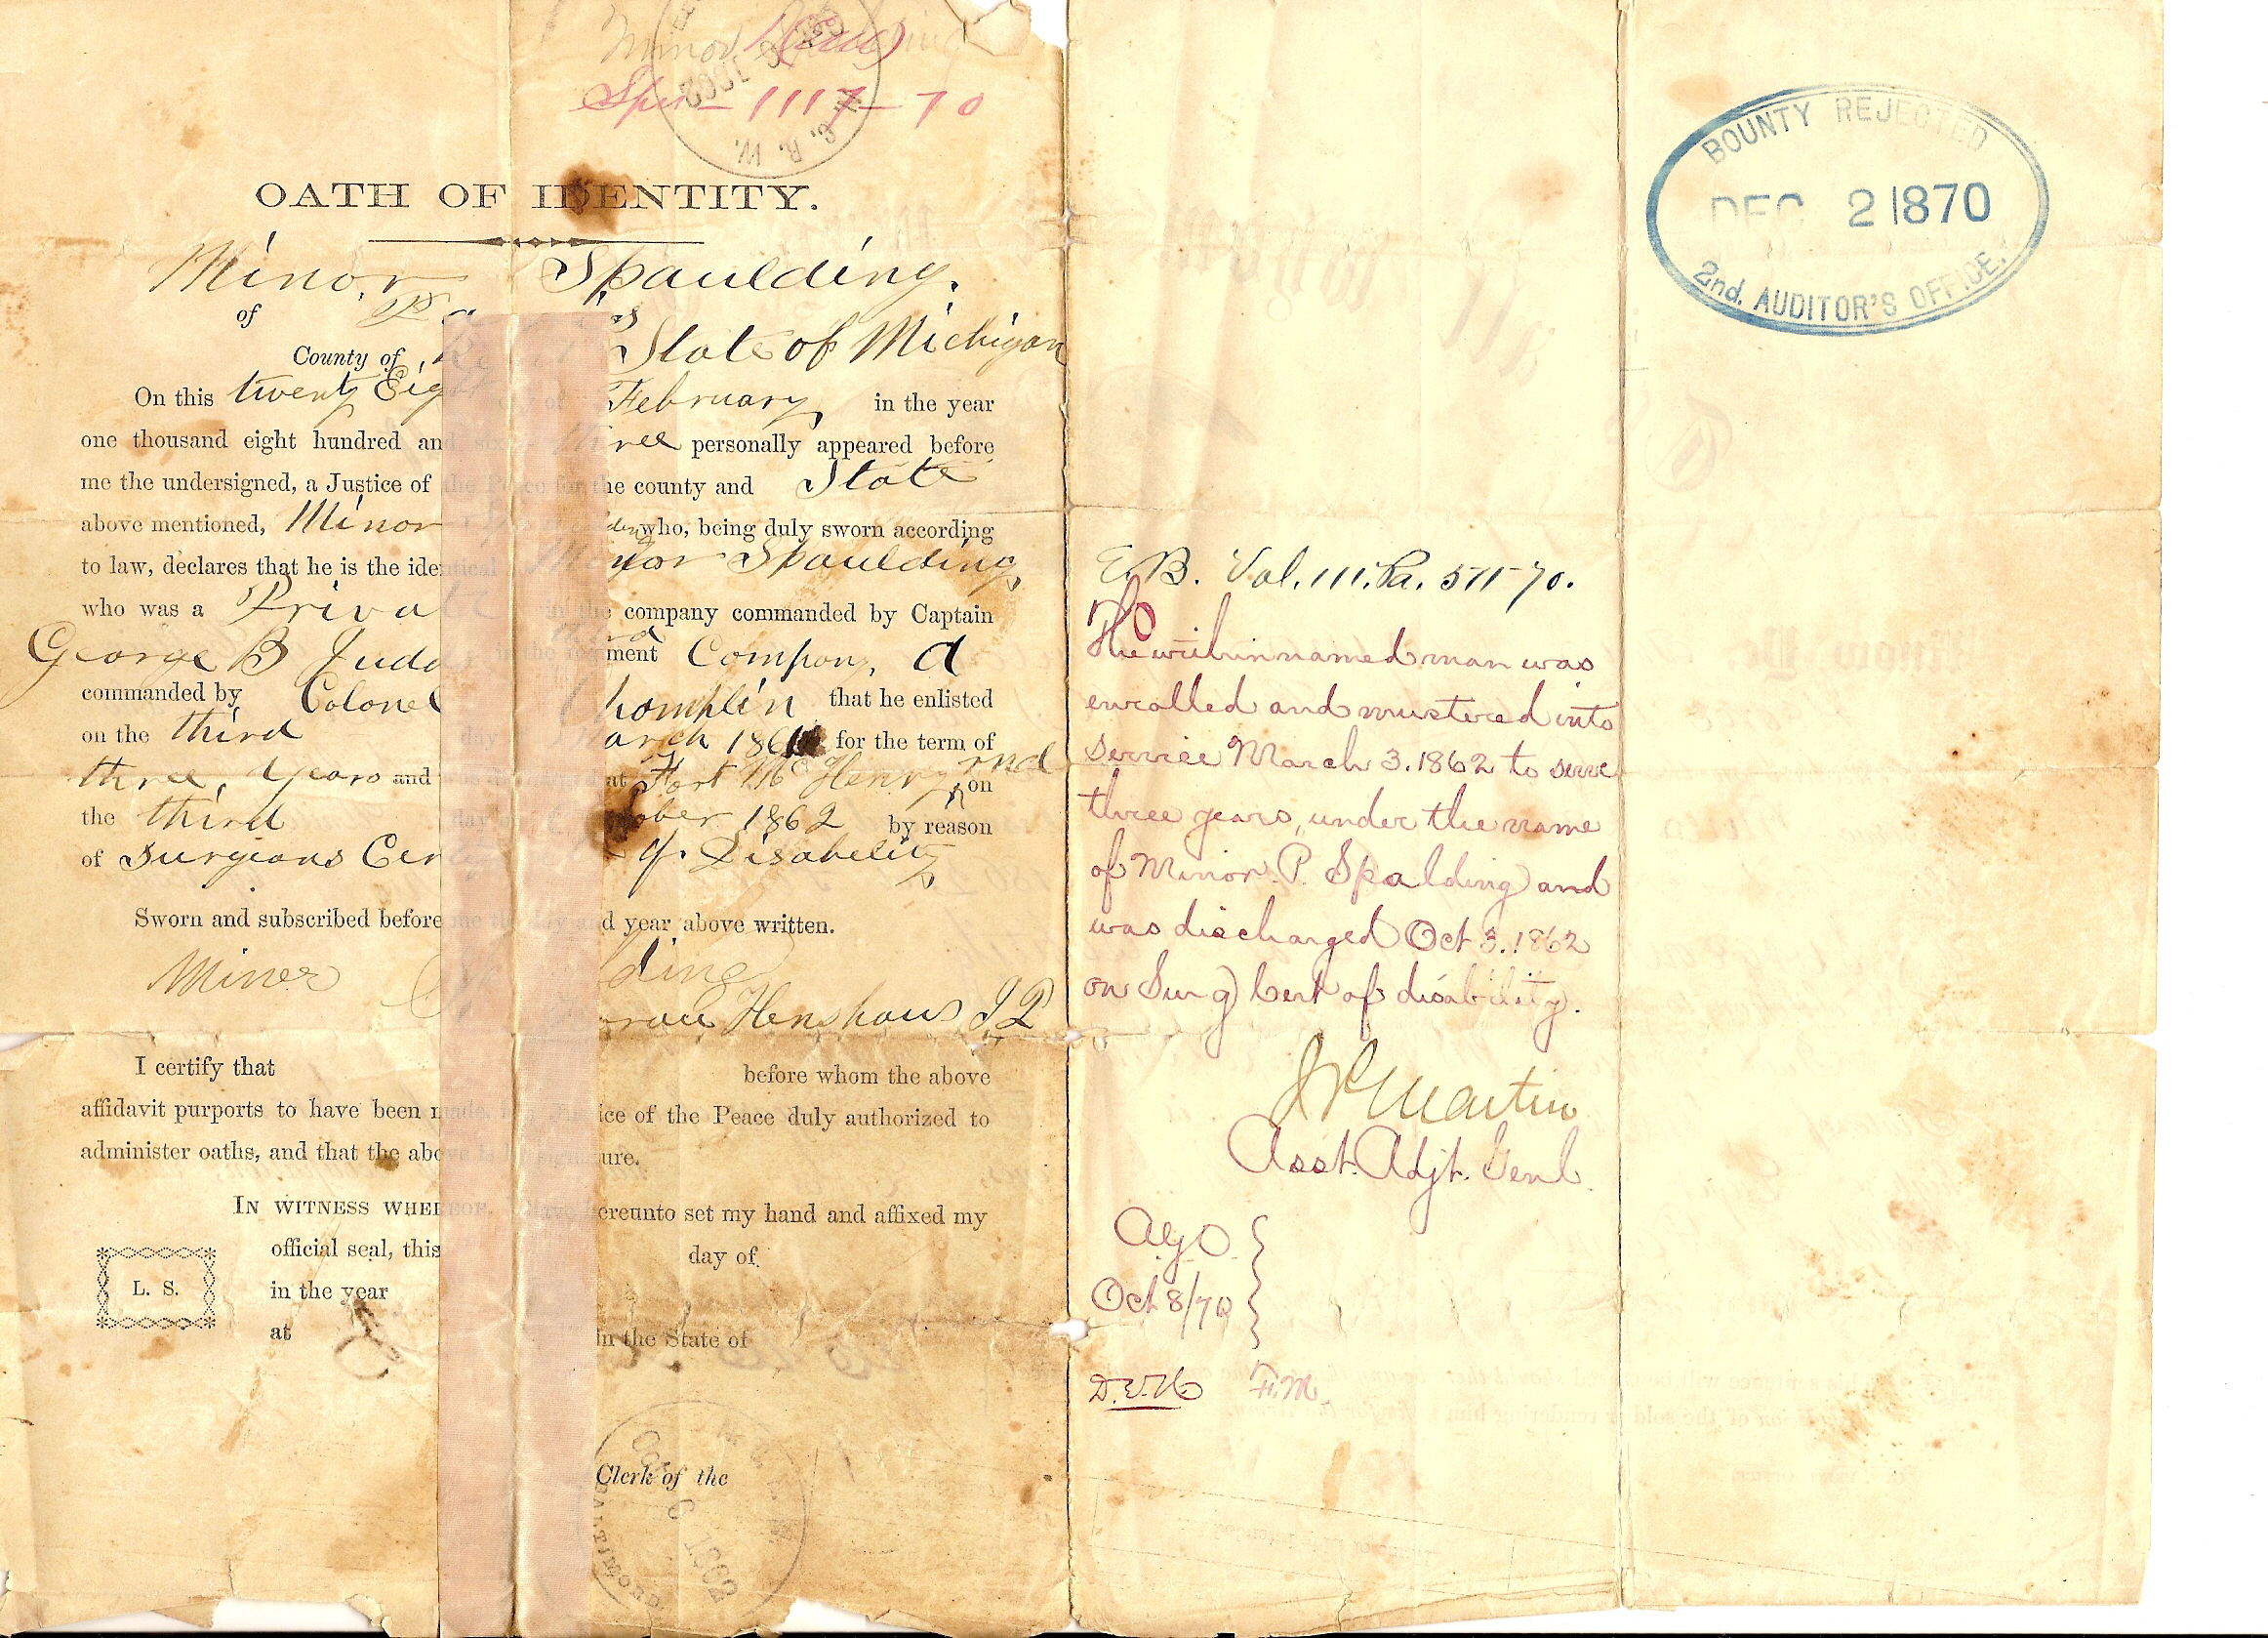 Minor
Spa— 1117— 70
OATH OF IDENTITY.
Minor Spaulding.
of
County of State of Michigan
On this twenty Eig day of February in the year
one thousand eight hundred and six three personally appeared before
me the undersigned, a Justice of the Peace for the county and State
above mentioned, Minor who, being duly sworn according
to law, declares that he is the identical Minor Spaulding
who was a Private in the company commanded by Captain
George B Judd in the regiment Company A
commanded by Colonel homplin that he enlisted
on the third day arch 186 for the term of
three years and at Fort Mc Henry md on
the third day ober 1862 by reason
of Surgions Cer of Disability
Sworn and subscribed before me the day and year above written.
Miner lding
Henshaw J P
I certify that before whom the above
affidavit purports to have been made, ice of the Peace duly authorized to
administer oaths, and that the above is signature.
IN WITNESS WHEREOF, have hereunto set my hand and affixed my
official seal, this day of
L. S.
in the year
at
in the State of
Clerk of the
6 1862
BALTIMORE
E.B. Vol. 111. Pa. 511-70.
The within named man was
enrolled and mustered into
service March 3. 1862 to serve
three years, under the name
of Minor P. Spalding and
was discharged Oct 3. 1862
on Surg Cert of disability.
Martin
Asst. Adjt. Genl.
A.G.O.
Oct 8/70
F.M.
BOUNTY REJECTED
DEC 2 1870
2nd. AUDITOR'S OFFICE.